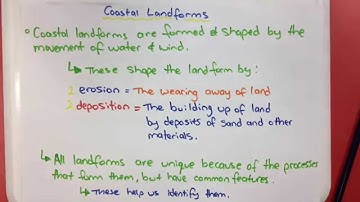 Coastal Landforms
Coastal landforms are formed & shaped by the
movement of water & wind.
↳ These shape the landform by:
1 erosion = The wearing away of land
2 deposition = The building up of land
by deposits of sand and other
materials.
↳ All landforms are unique because of the processes
that form them, but have common features.
↳ These help us identify them.